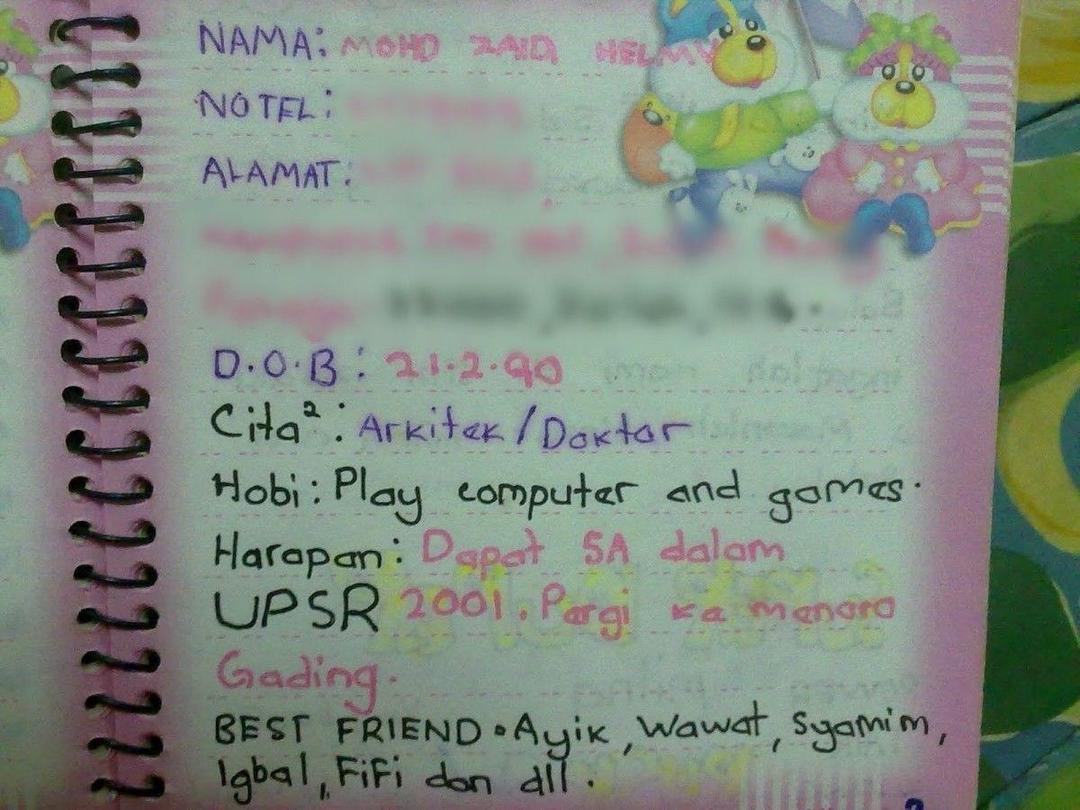 NAMA: MOHD ZAIDI HELMY
NO TEL:
ALAMAT:
D.O.B: 21.2.90
Cita²: Arkitek/Doktor
Hobi: Play computer and games.
Harapan: Dapat 5A dalam
UPSR 2001. Pergi ke menara
Gading.
BEST FRIEND • Ayik, Wawat, Syamim,
Iqbal, FiFi dan dll.